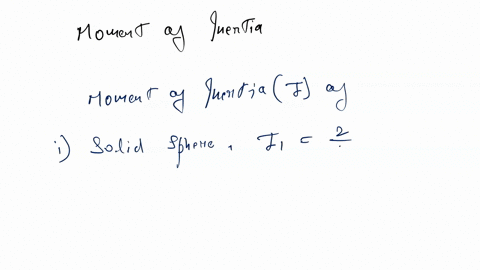 Moment of Inertia
Moment of Inertia (I) of
i) Solid Sphere, I₁ = 2/